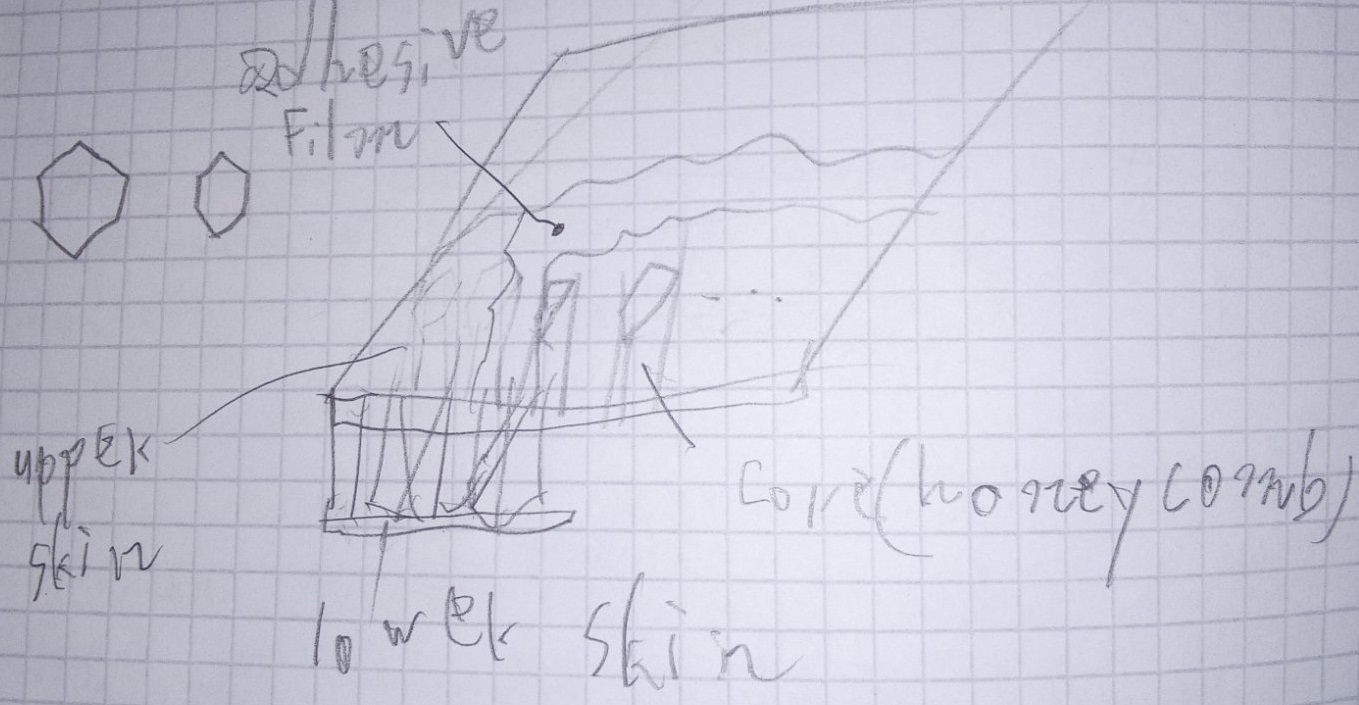 adhesive
Film
upper
skin
core(honeycomb)
lower skin